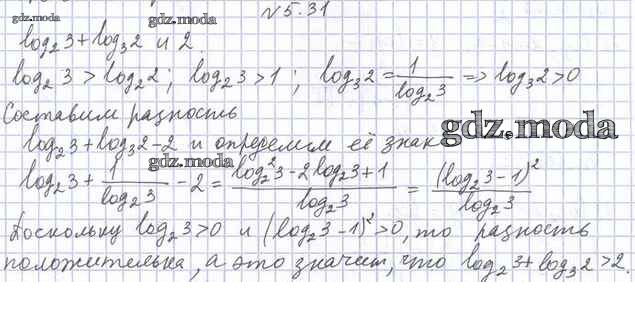 №5.31
gdz.moda
gdz.moda
log₂3 + log₃2 и 2.
log₂ 3 > log₂2; log₂3 > 1; log₃2 = 1/log₂3 => log₃2 > 0
Составим разность
log₂3 + log₃2 - 2 и определим её знак
gdz.moda
gdz.moda
log₂3 + 1/log₂3 - 2 = (log₂²3 - 2log₂3 + 1)/log₂3 = (log₂3 - 1)²/log₂3
Поскольку log₂3 > 0 и (log₂3 - 1)² > 0, то разность
положительна, а это значит, что log₂3 + log₃2 > 2.